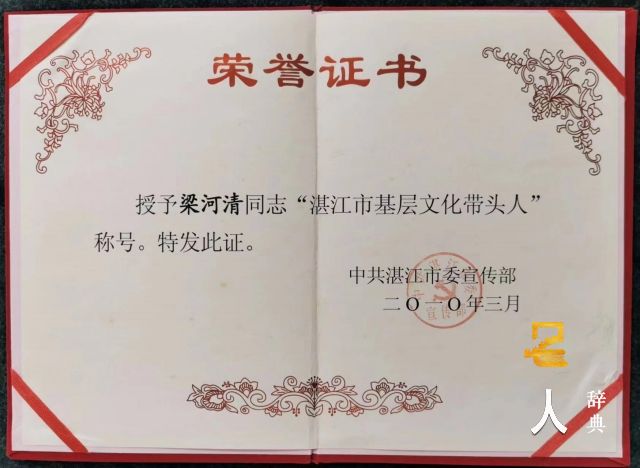 荣誉证书
授予梁河清同志“湛江市基层文化带头人”
称号。特发此证。
中共湛江市委宣传部
二O一O年三月
人
辞典